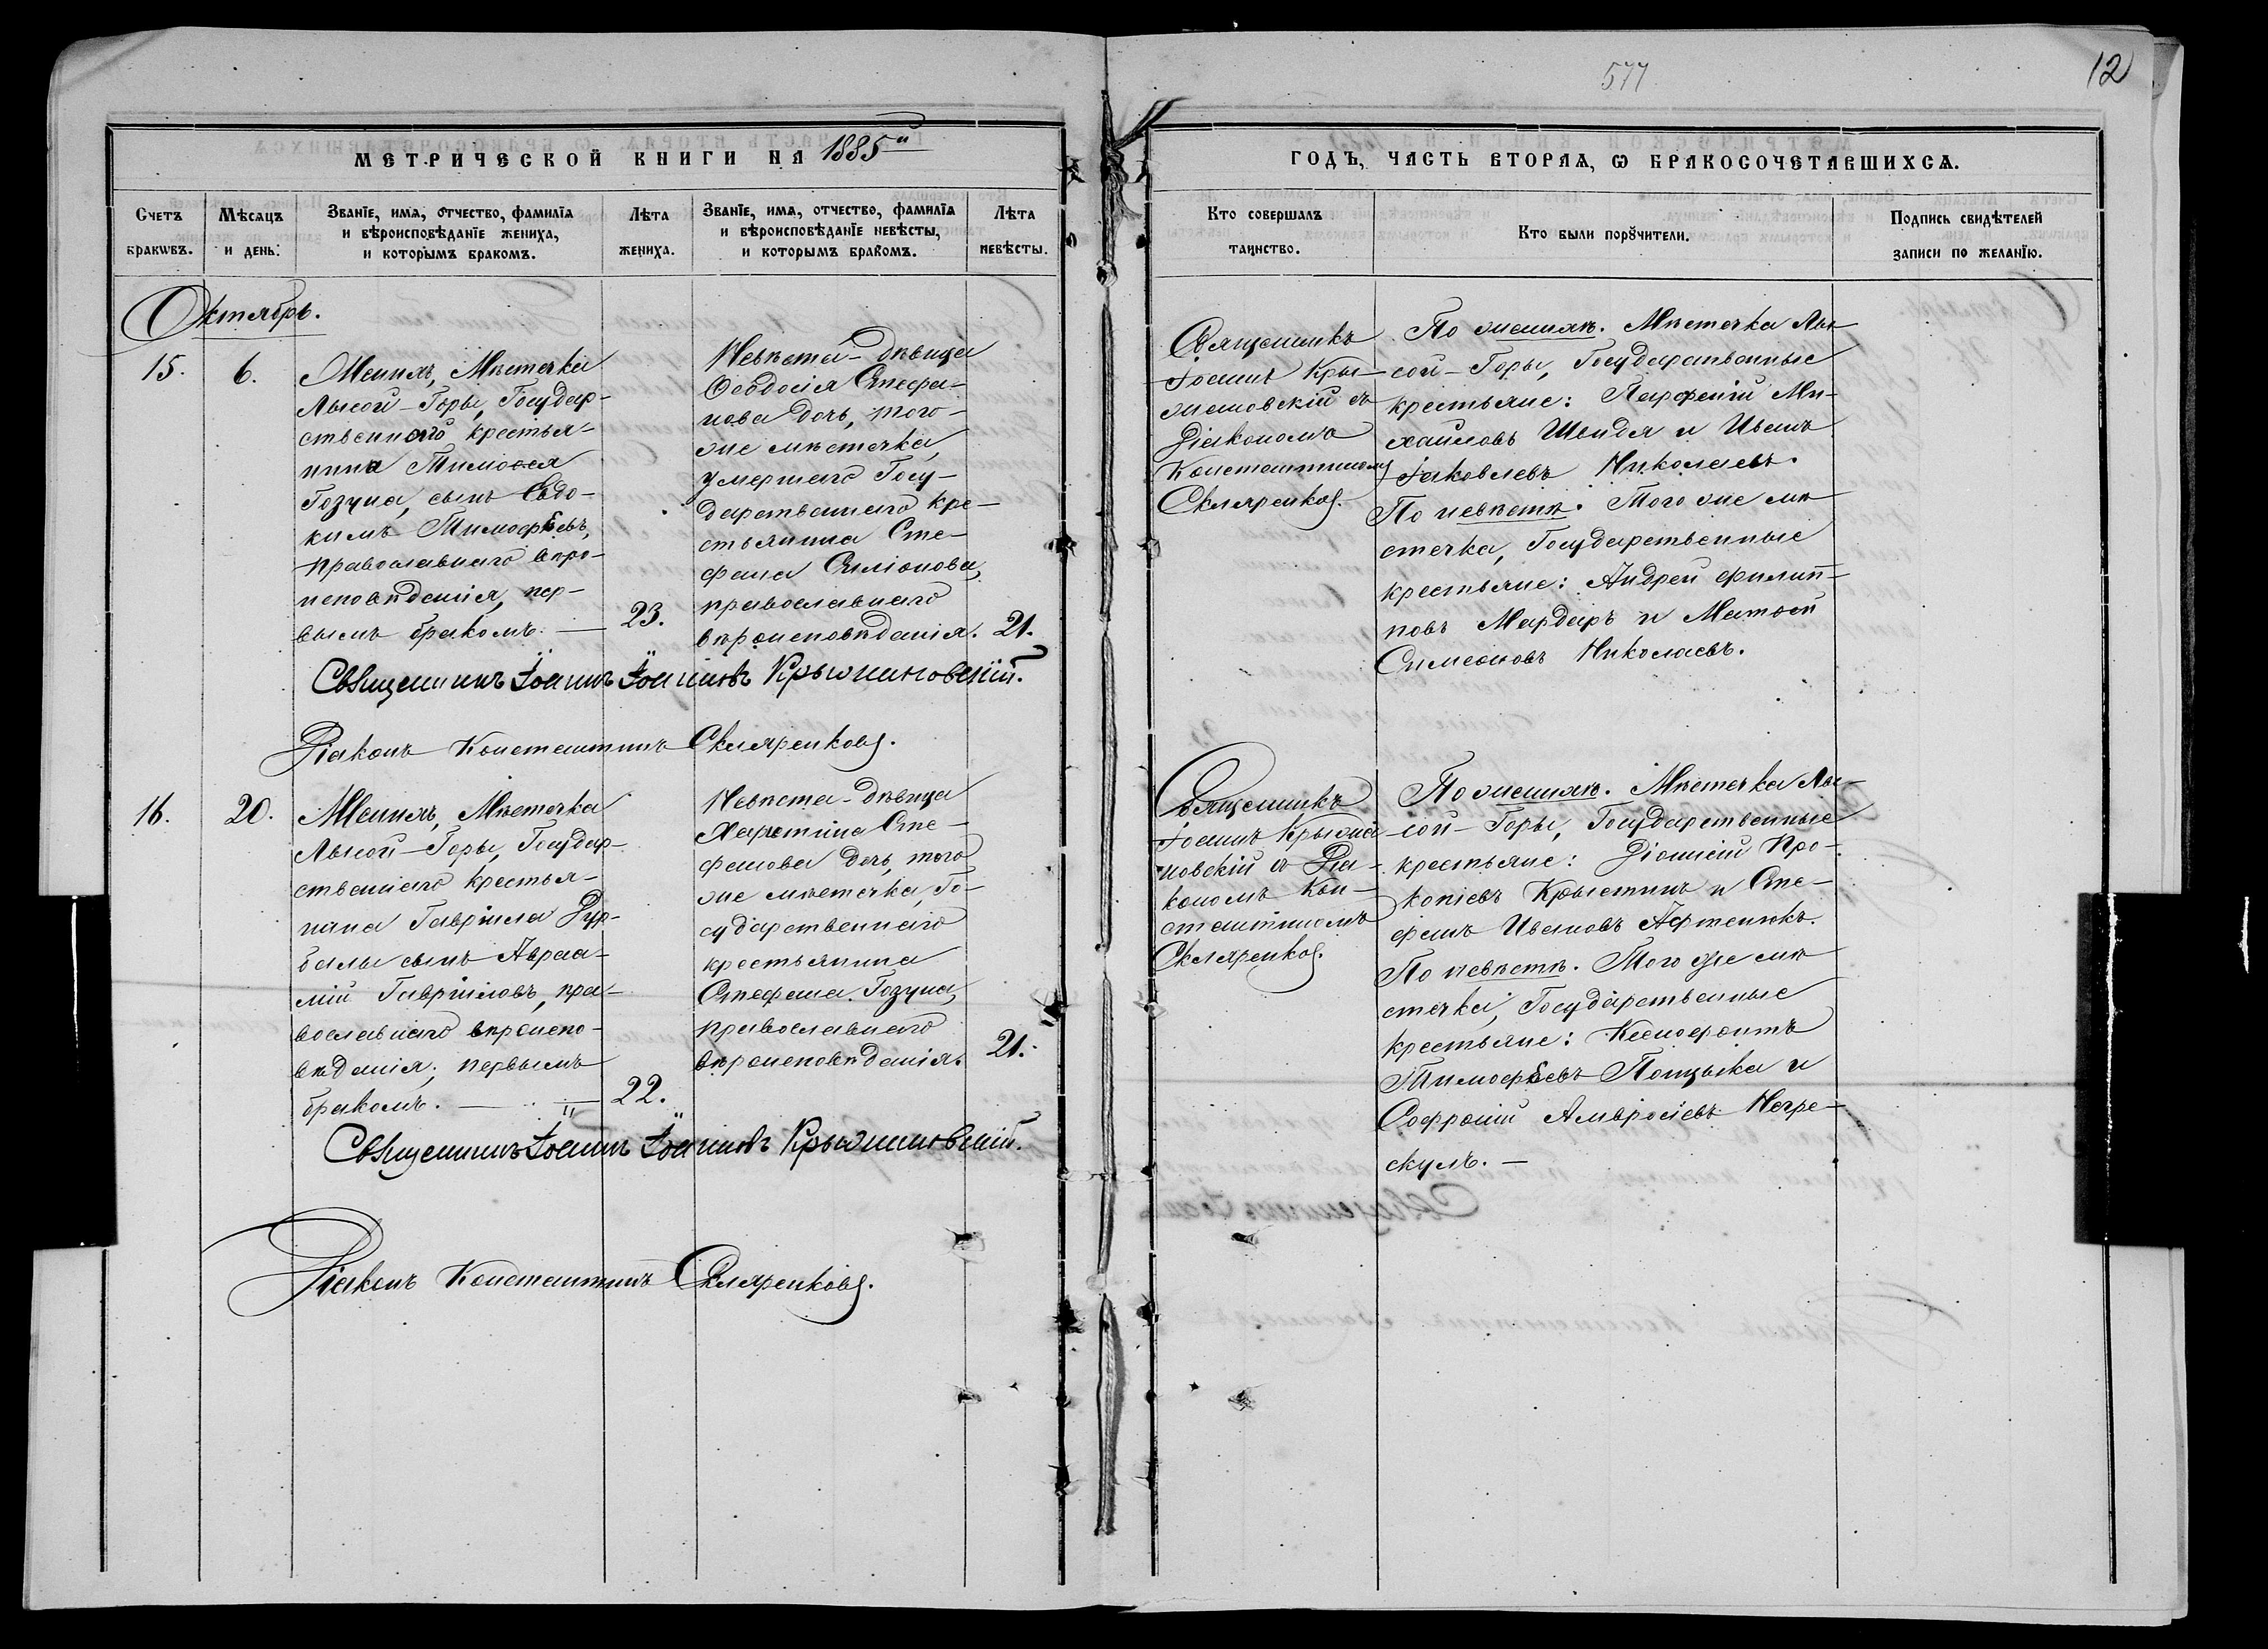 577
12
МЕТРИЧЕСКОЙ КНИГИ НА 1885й
ГОДЪ, ЧАСТЬ ВТОРАЯ, Ѡ БРАКОСОЧЕТАВШИХСѦ.
Счетъ
браковъ.
Мѣсяцъ
и день.
Званїе, имѧ, отчество, фамилїѧ
и вѣроисповѣданїе жениха,
и которымъ бракомъ.
Лѣта
жениха.
Званїе, имѧ, отчество, фамилїѧ
и вѣроисповѣданїе невѣсты,
и которымъ бракомъ.
Лѣта
невѣсты.
Кто совершалъ
таинство.
Кто были порꙋчители.
Подпись свидѣтелей
записи по желанїю.
Октябрь.
15.
6.
Женихъ, Мѣстечка
Лысой-Горы, Государ-
ственнаго крестья-
нина Тимоѳея
Гозуна, сынъ Евдо-
кимъ Тимофѣевъ,
православнаго вѣро-
исповѣданія, пер-
вымъ бракомъ. —
23.
Невѣста-дѣвица
Ѳеодосія Стефа-
нова дочь, того-
же мѣстечка,
умершаго Госу-
дарственнаго кре-
стьянина Сте-
фана Симіонова,
православнаго
вѣроисповѣданія.
21.
Священникъ
Іоаннъ Кры-
жановскій съ
Діакономъ
Константиномъ
Скляренковъ.
По женихѣ. Мѣстечка Лы-
сой-Горы, Государственные
крестьяне: Парфеній Ми-
хаиловъ Швидя и Иванъ
Іаковлевъ Николаевъ.
По невѣстѣ. Того же мѣ-
стечка, Государственные
крестьяне: Андрей филип-
повъ Мардаръ и Матѳей
Симеоновъ Николаевъ.
Священникъ Іоаннъ Іоанновъ Крыжановскій.
Діаконъ Константинъ Скляренковъ.
16.
20.
Женихъ, Мѣстечка
Лысой-Горы, Государ-
ственнаго крестья-
нина Гавріила Дур-
балы сынъ Авраа-
мій Гавріиловъ, пра-
вославнаго вѣроиспо-
вѣданія, первымъ
бракомъ. —
22.
Невѣста-дѣвица
Харитина Сте-
фанова дочь, того
же мѣстечка, Го-
сударственнаго
крестьянина
Стефана Гозуна,
православнаго
вѣроисповѣданія.
21.
Священникъ
Іоаннъ Крыжа-
новскій съ Діа-
кономъ Кон-
стантиномъ
Скляренковъ.
По женихѣ. Мѣстечка Лы-
сой-Горы, Государственные
крестьяне: Діонисій Про-
копіевъ Крыстинъ и Сте-
фанъ Ивановъ Афтенюкъ.
По невѣстѣ. Того же мѣ-
стечка, Государственные
крестьяне: Ксенофонтъ
Тимофѣевъ Попцыка и
Софроній Амвросіевъ Негре-
скулъ. —
Священникъ Іоаннъ Іоанновъ Крыжановскій.
Діаконъ Константинъ Скляренковъ.